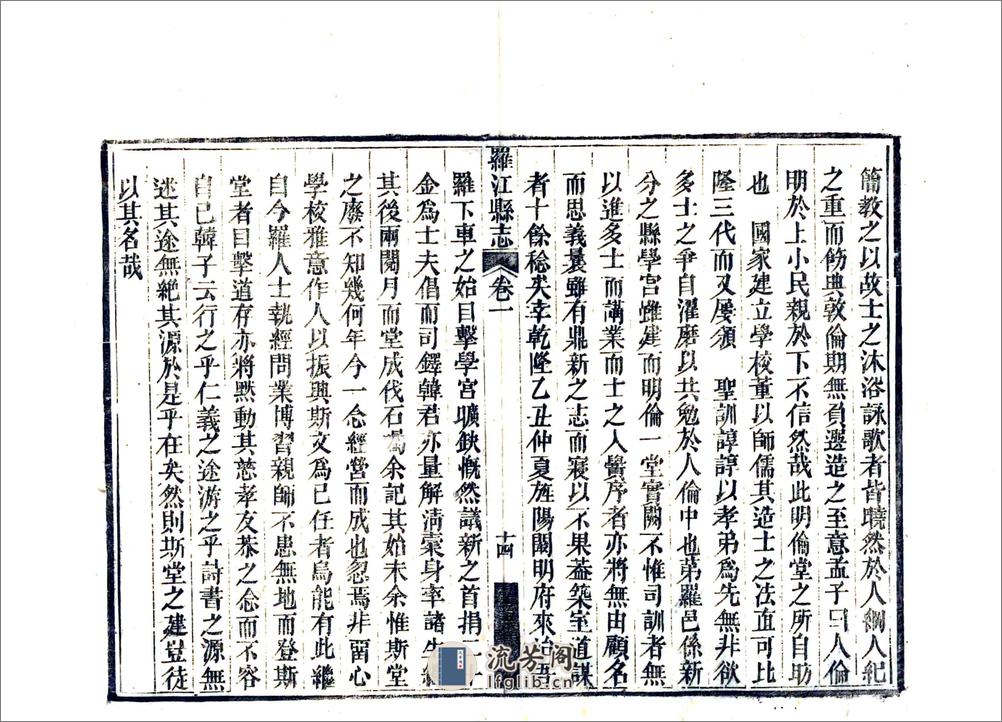 簡教之以故士之沐浴詠歌者皆曉然於人綱人紀
之重而飭典敦倫期無負遵造之至意孟子曰人倫
明於上小民親於下不信然哉此明倫堂之所自助
也 國家建立學校董以師儒其造士之法直可比
隆三代而又屢頒 聖訓諄諄以孝弟爲先無非欲
多士之爭自濯磨以共勉於人倫中也第羅邑係新
分之縣學宮雖建而明倫一堂實闕不惟司訓者無
以進多士而講業而士之人黌序者亦將無由顧名
而思義曩雖有鼎新之志而寢以不果葢築室道謀
者十餘稔矣幸乾隆乙丑仲夏旌陽闞明府來治吾
羅江縣志 卷一 十四
羅下車之始目擊學宮曠缺慨然議新之首捐
金爲士夫倡而司鐸韓君亦量解清橐身率諸
其後兩閱月而堂成伐石屬余記其始末余惟斯堂
之廢不知幾何年今一念經營而成也忽焉非留心
學校雅意作人以振興斯文爲已任者烏能有此繼
自今羅人士執經問業博習親師不患無地而登斯
堂者目擊道存亦將黙動其慈孝友恭之念而不容
自已韓子云行之乎仁義之途游之乎詩書之源無
迷其途無絶其源於是乎在矣然則斯堂之建豈徒
以其名哉
流芳阁
lfglib.cn